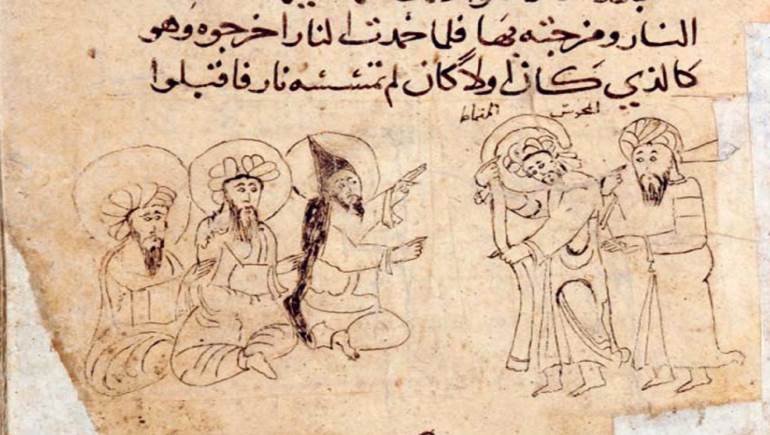 النار ومزجته بها فلما خمدت النار اخرجوه وهو
كالذي كان اولا كان لم تمسسه نار فاقتبلوا